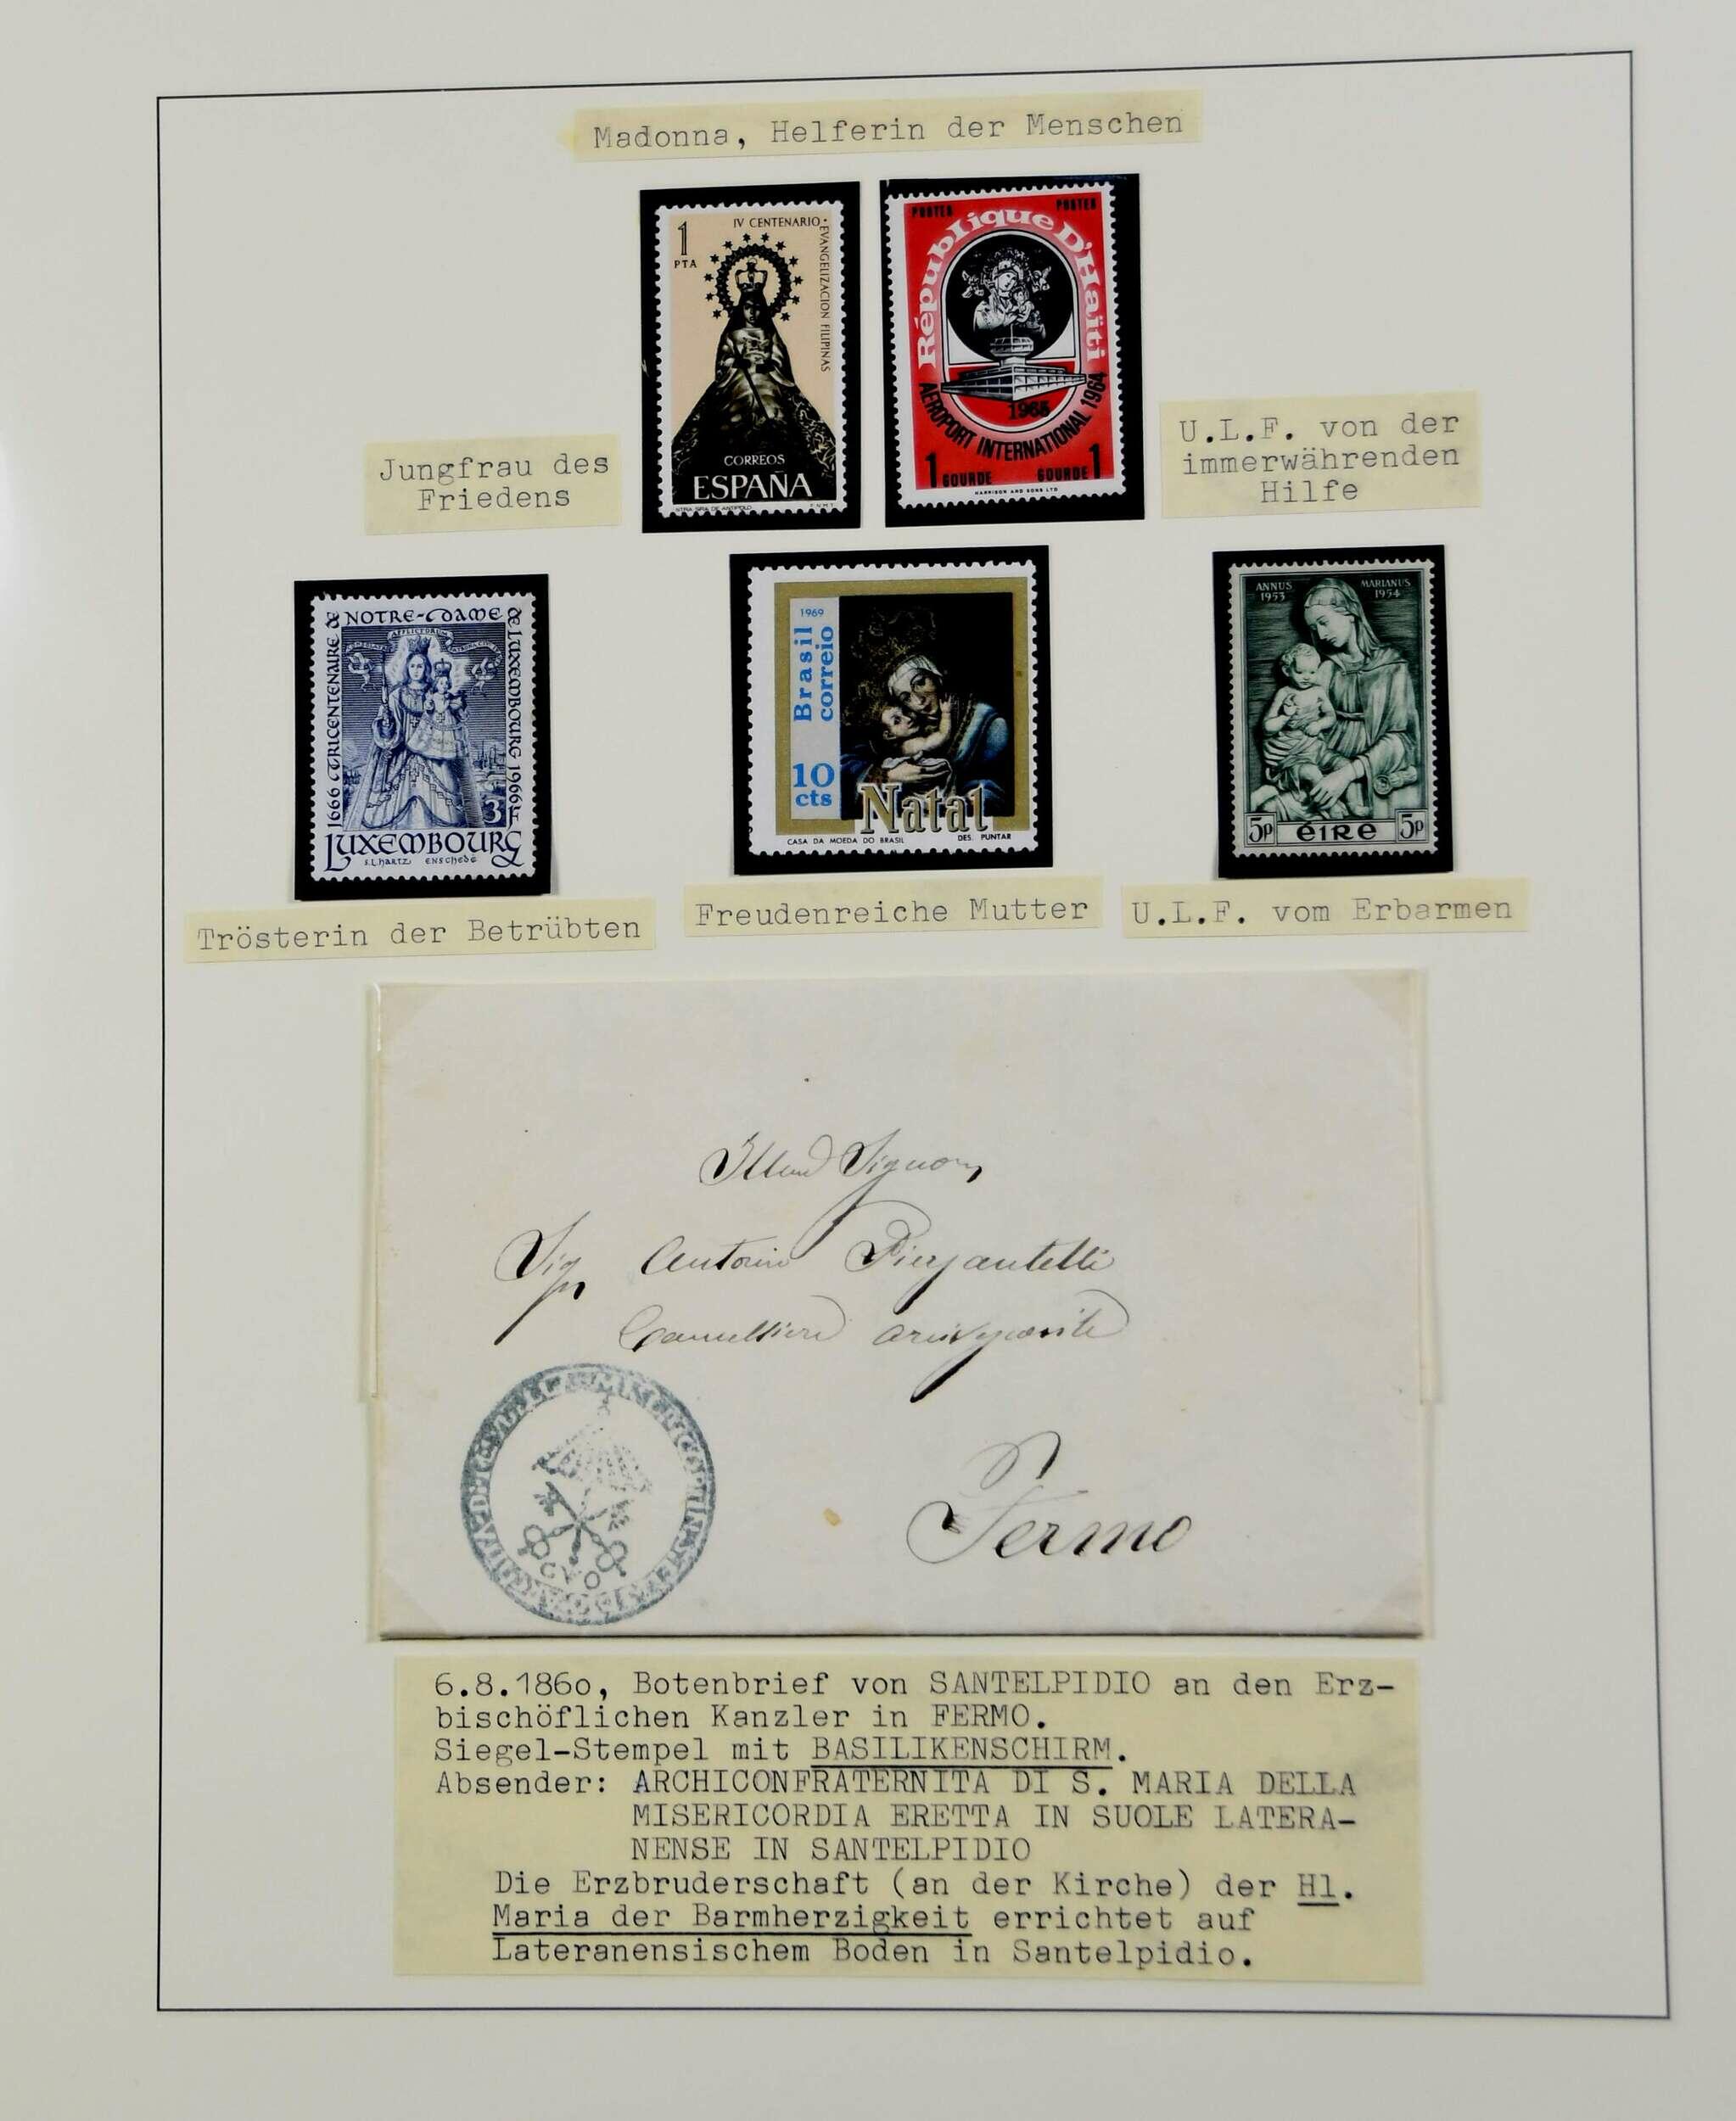 Madonna, Helferin der Menschen
1
PTA
IV CENTENARIO · EVANGELIZACION FILIPINAS
CORREOS
ESPAÑA
NTRA SRA DE ANTIPOLO
F.N.M.T
POSTES POSTES
République D'Haïti
1965
AEROPORT INTERNATIONAL 1964
1 GOURDE GOURDE 1
HARRISON AND SONS LTD
Jungfrau des
Friedens
U.L.F. von der
immerwährenden
Hilfe
1666 TRICENTENAIRE DE NOTRE-DAME DE LUXEMBOURG 1966
3F
LUXEMBOURG
S.L.HARTZ ENSCHEDÉ
1969
Brasil
correio
10
cts
Natal
CASA DA MOEDA DO BRASIL DES. PUNTAR
ANNUS
1953
MARIANUS
1954
5p ÉIRE 5p
Trösterin der Betrübten
Freudenreiche Mutter
U.L.F. vom Erbarmen
Sig Antonio
Fermo
6.8.186o, Botenbrief von SANTELPIDIO an den Erz-
bischöflichen Kanzler in FERMO.
Siegel-Stempel mit BASILIKENSCHIRM.
Absender: ARCHICONFRATERNITA DI S. MARIA DELLA
MISERICORDIA ERETTA IN SUOLE LATERA-
NENSE IN SANTELPIDIO
Die Erzbruderschaft (an der Kirche) der Hl.
Maria der Barmherzigkeit errichtet auf
Lateranensischem Boden in Santelpidio.